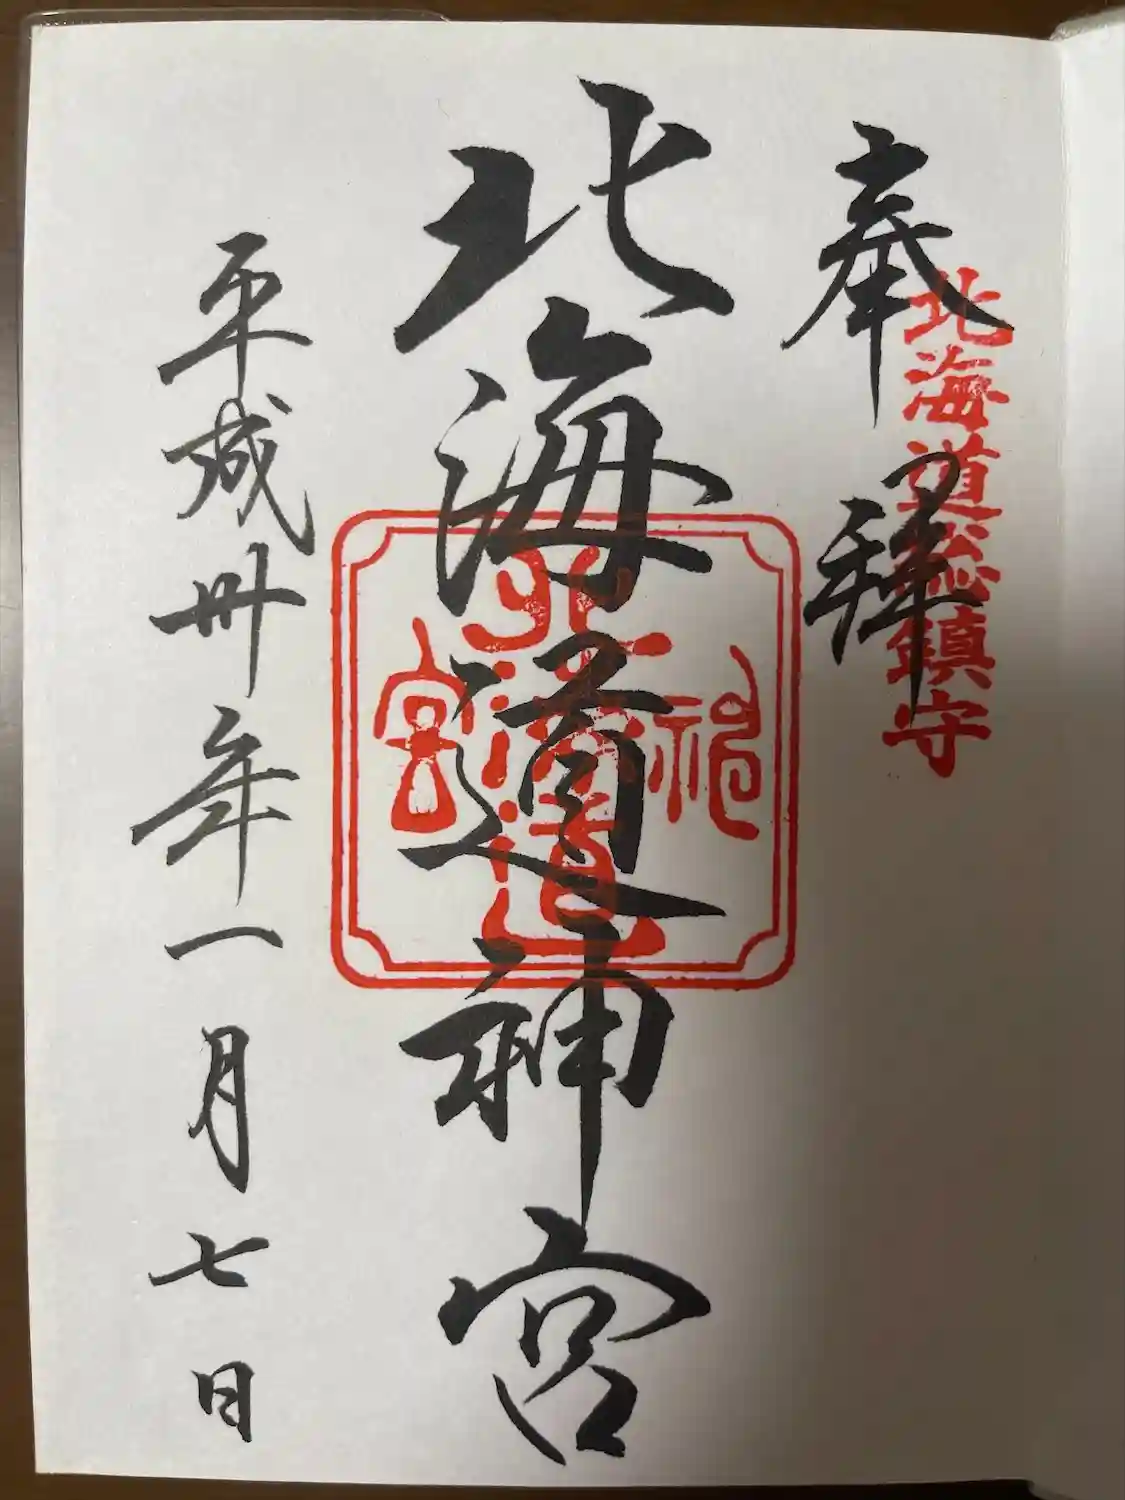 奉拝
北海道総鎮守
北海道神宮
北海道神宮
平成卅年一月七日